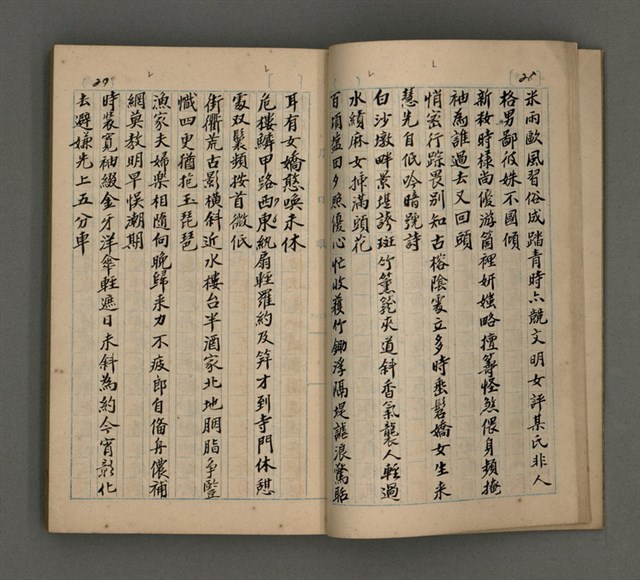 28
米雨歐風習俗成踏青時六競文明女評某氏非人
格男鄙彼姝不國傾
新敉時樣尚優游箇裡妍媸略擅籌怪煞偎身頻掩
袖為誰過去又回頭
悄密行踪畏別知古榕陰處立多時垂髫嬌女生来
慧先自低吟暗號詩
白沙墩畔景堪誇斑竹篱笆夾道斜香氣襲人輕過
水績麻女揷滿頭花
百頃盤回夕照優心忙收穫竹鋤浮隔堤謔浪驚聒
27
耳有女嬌憨喚未休
危樓鱗甲路西東紈扇輕羅約及笄才到寺門休憩
處双鬟頻按首微低
街衢荒古影橫斜近水樓台半酒家北地胭脂争豔
幟四更猶抱玉琵琶
漁家夫婦樂相隨向晚歸来力不疲郎自偹舟儂補
網莫教明早悞潮期
時裝寬袖綴金牙洋傘輕遮日未斜為約今宵彰化
去避嫌先上五分車